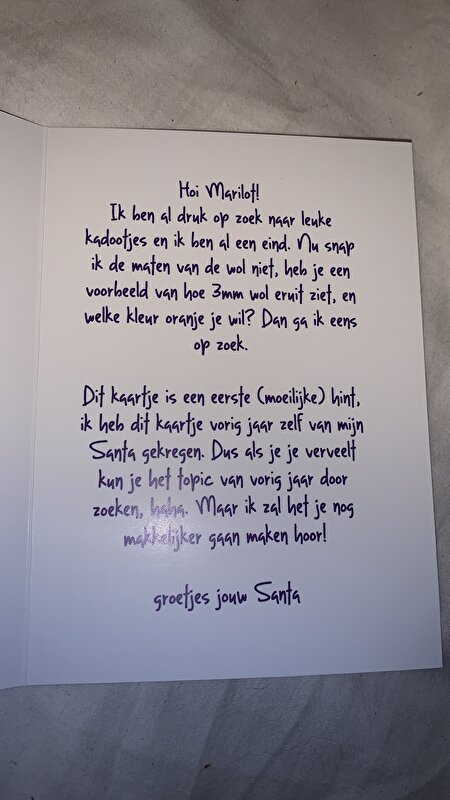 Hoi Marilot!
Ik ben al druk op zoek naar leuke
kadootjes en ik ben al een eind. Nu snap
ik de maten van de wol niet, heb je een
voorbeeld van hoe 3mm wol eruit ziet, en
welke kleur oranje je wil? Dan ga ik eens
op zoek.
Dit kaartje is een eerste (moeilijke) hint,
ik heb dit kaartje vorig jaar zelf van mijn
Santa gekregen. Dus als je je verveelt
kun je het topic van vorig jaar door
zoeken, haha. Maar ik zal het je nog
makkelijker gaan maken hoor!
groetjes jouw Santa